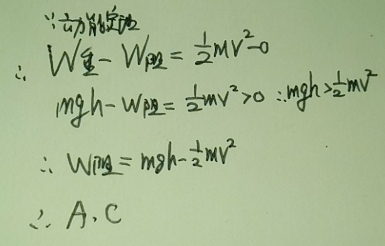 ∵动能定理
∴ W重 - W阻 = ½mv²-0
mgh - W阻 = ½mv² > 0 ∴ mgh > ½mv²
∴ W阻 = mgh - ½mv²
∴ A.C